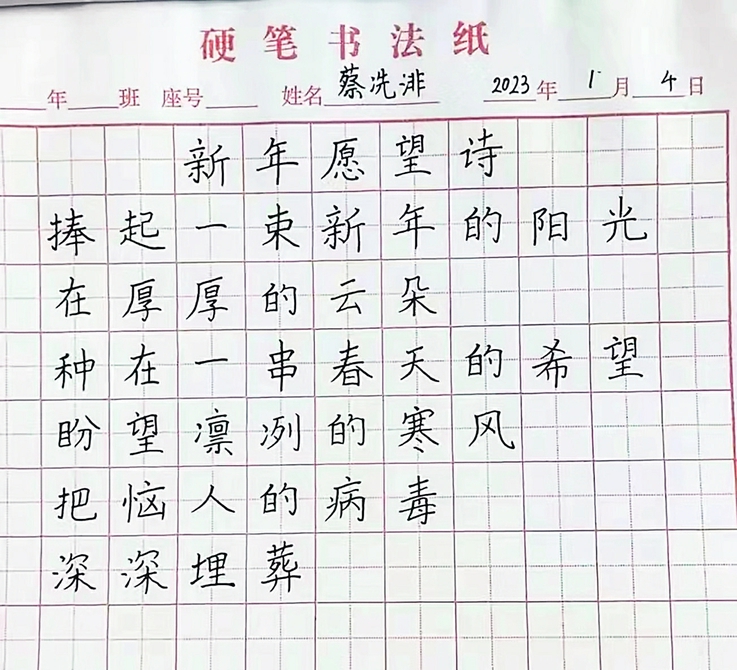 硬笔书法纸
年 班 座号 姓名 蔡冼湃 2023年1月4日
新年愿望诗
捧起一束新年的阳光
在厚厚的云朵
种在一串春天的希望
盼望凛冽的寒风
把恼人的病毒
深深埋葬